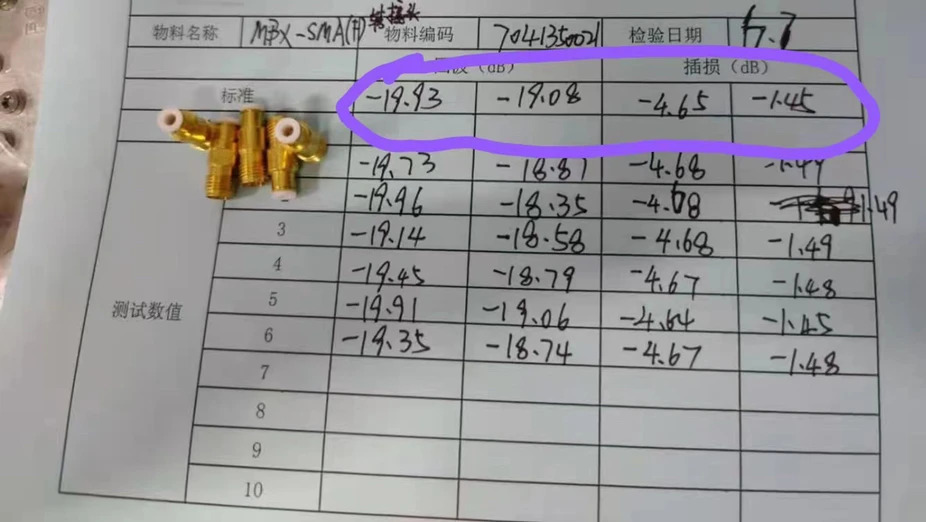 物料名称 MBX-SMA(H)转接头 物料编码 7041350021 检验日期 6.7
回波（dB） 插损（dB）
标准 -19.93 -19.08 -4.65 -1.45
-19.73 -18.87 -4.68 -1.49
-19.96 -18.35 -4.68 -1.49
3 -19.14 -18.58 -4.68 -1.49
4 -19.45 -18.79 -4.67 -1.48
测试数值 5 -19.91 -19.06 -4.64 -1.45
6 -19.35 -18.74 -4.67 -1.48
7
8
9
10